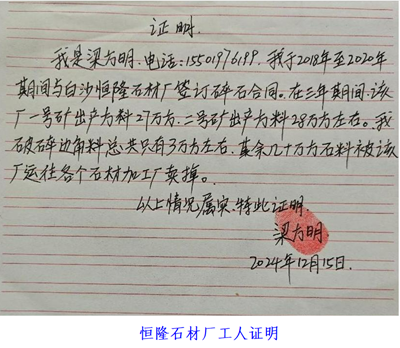 证明.
我是梁方明.电话:15501976199.我于2018年至2020年
期间与白沙恒隆石材厂签订碎石合同。在三年期间.该
厂一号矿出产方料27万方.二号矿出产方料28万方左右。我
石破碎边角料总共只有3万方左右.其余几十万方石料被该
厂运往各个石材加工厂卖掉。
以上情况属实.特此证明.
梁方明.
2024年12月15日.
恒隆石材厂工人证明